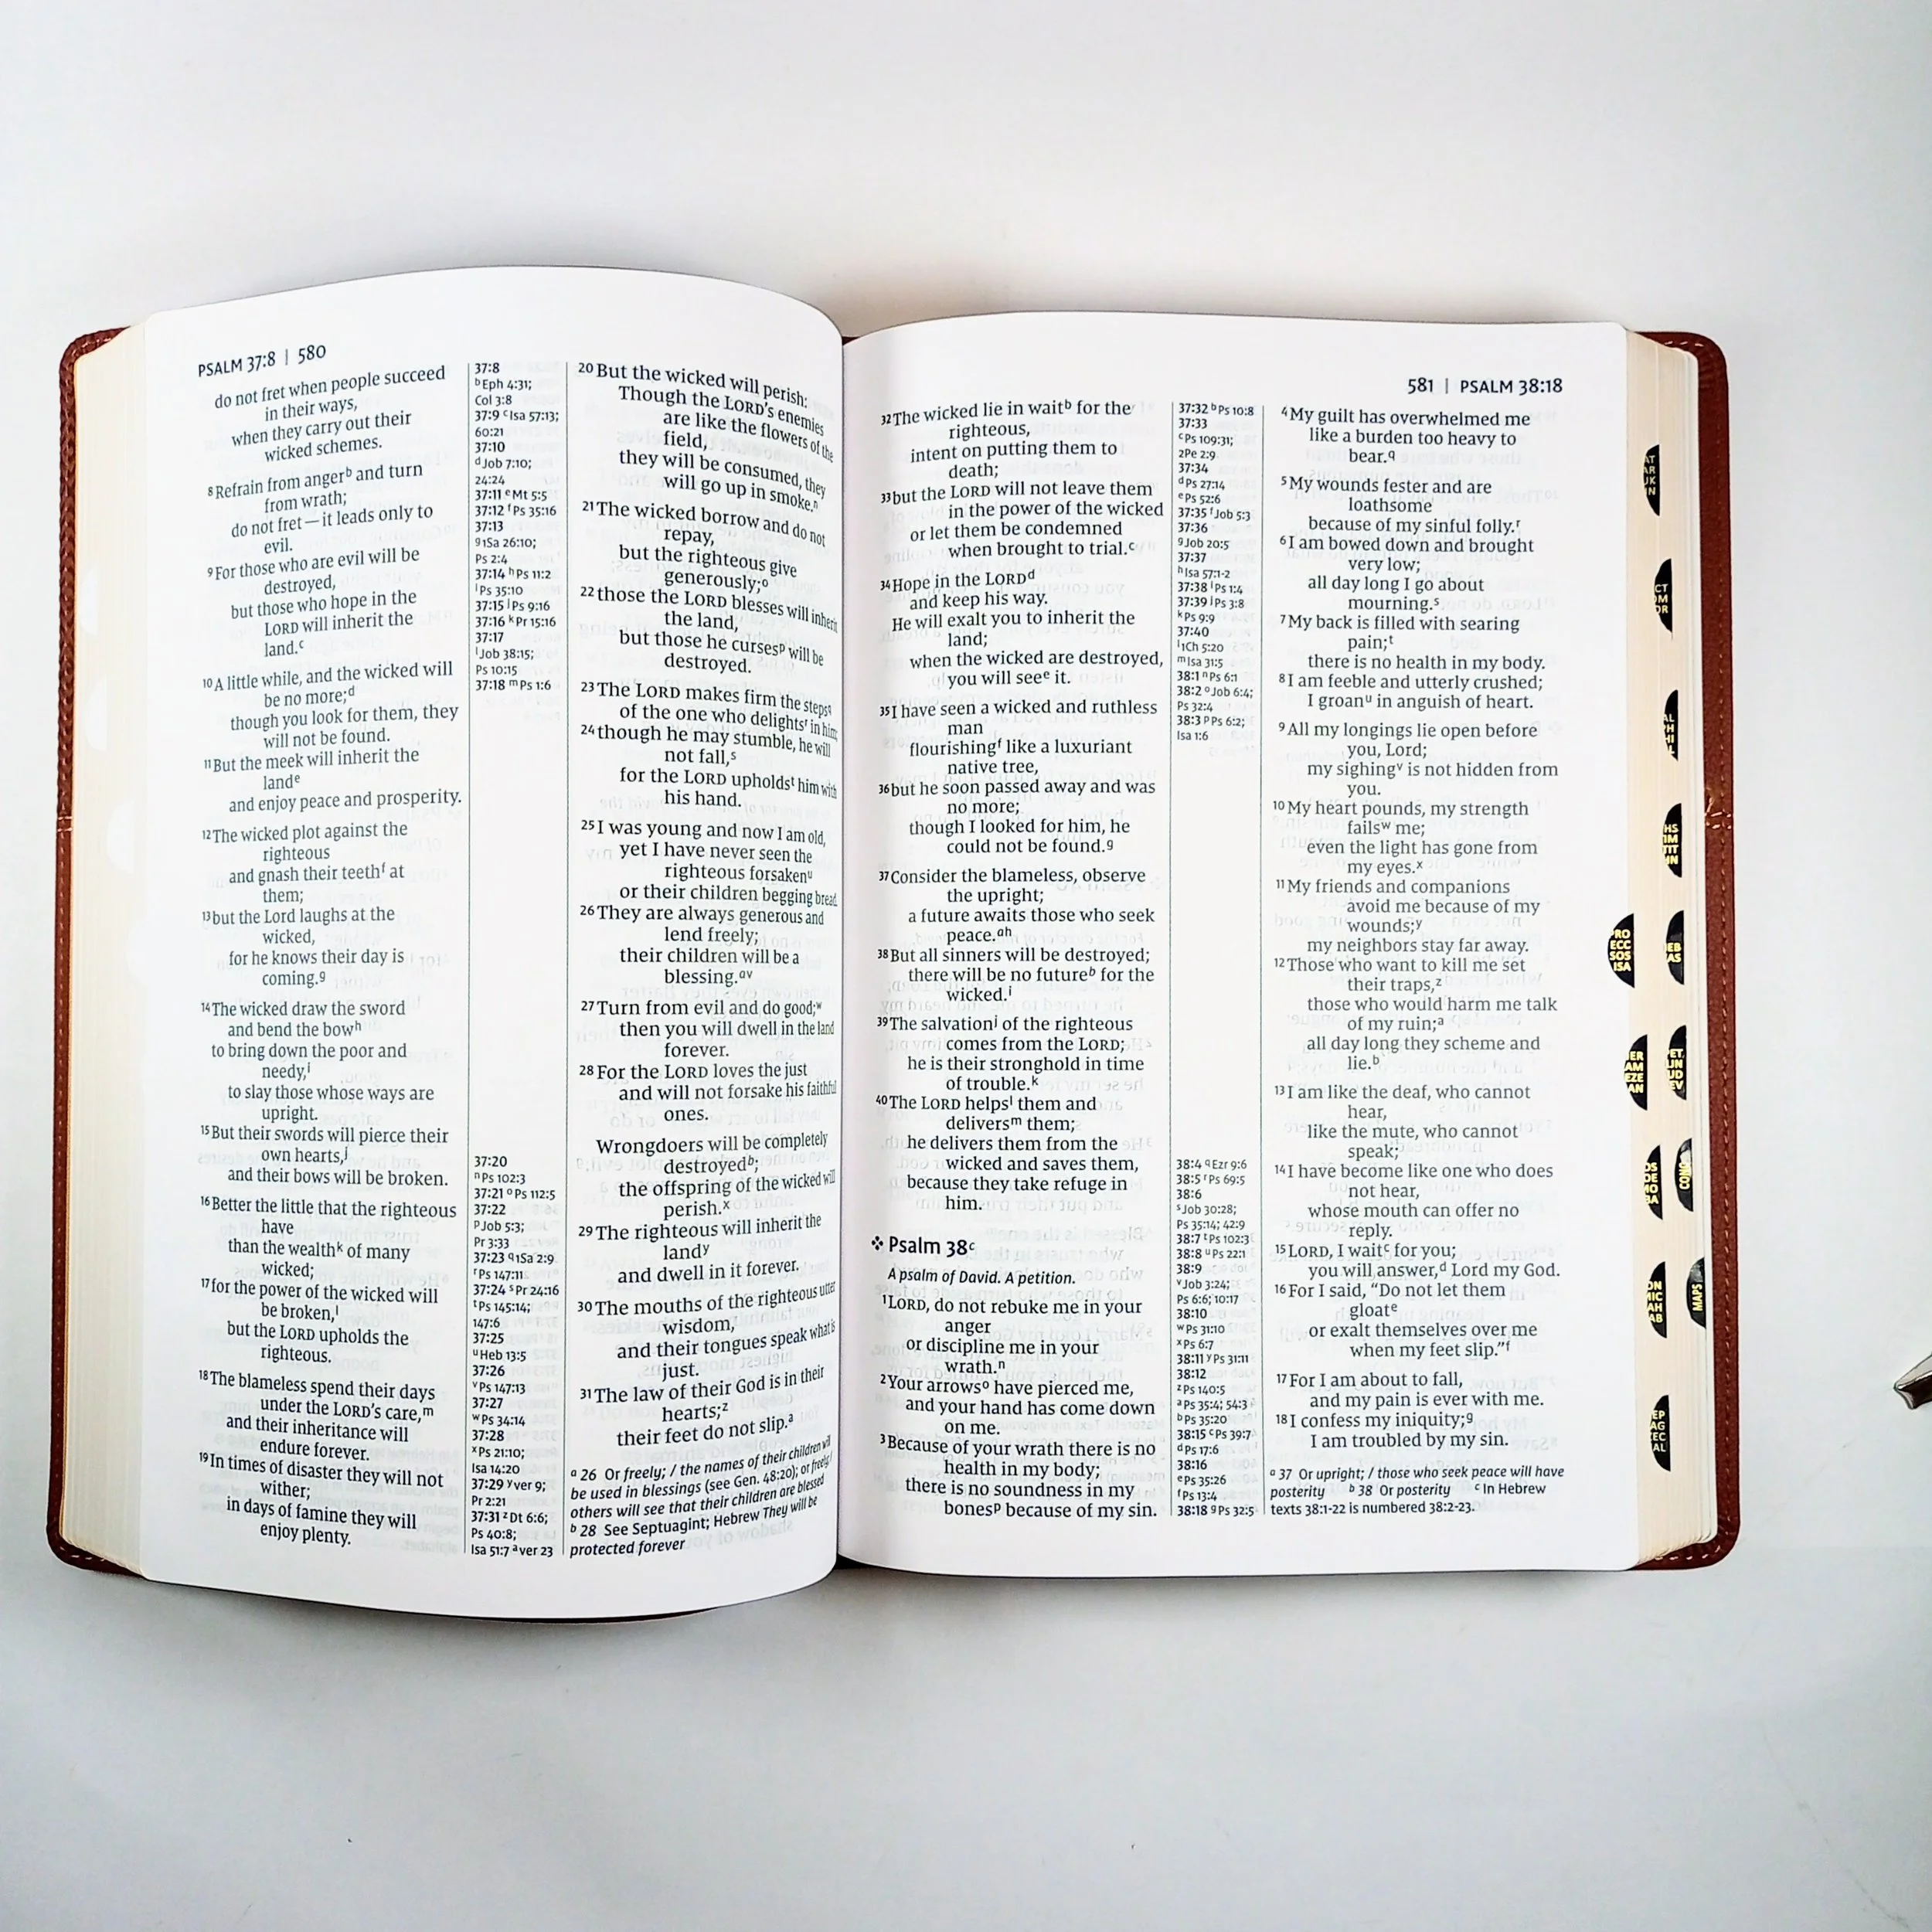 PSALM 37:8 | 580
do not fret when people succeed
in their ways,
when they carry out their
wicked schemes.
8 Refrain from anger b and turn
from wrath;
do not fret — it leads only to
evil.
9 For those who are evil will be
destroyed,
but those who hope in the
LORD will inherit the
land. c
10 A little while, and the wicked will
be no more; d
though you look for them, they
will not be found.
11 But the meek will inherit the
land e
and enjoy peace and prosperity.
12 The wicked plot against the
righteous
and gnash their teeth f at
them;
13 but the Lord laughs at the
wicked,
for he knows their day is
coming. g
14 The wicked draw the sword
and bend the bow h
to bring down the poor and
needy, i
to slay those whose ways are
upright.
15 But their swords will pierce their
own hearts, j
and their bows will be broken.
16 Better the little that the righteous
have
than the wealth k of many
wicked;
17 for the power of the wicked will
be broken, l
but the LORD upholds the
righteous.
18 The blameless spend their days
under the LORD's care, m
and their inheritance will
endure forever.
19 In times of disaster they will not
wither;
in days of famine they will
enjoy plenty.
37:8
b Eph 4:31;
Col 3:8
37:9 c Isa 57:13;
60:21
37:10
d Job 7:10;
24:24
37:11 e Mt 5:5
37:12 f Ps 35:16
37:13
g 1Sa 26:10;
Ps 2:4
37:14 h Ps 11:2
i Ps 35:10
37:15 j Ps 9:16
37:16 k Pr 15:16
37:17
l Job 38:15;
Ps 10:15
37:18 m Ps 1:6
37:20
n Ps 102:3
37:21 o Ps 112:5
37:22
p Job 5:3;
Pr 3:33
37:23 q 1Sa 2:9
r Ps 147:11
37:24 s Pr 24:16
t Ps 145:14;
147:6
37:25
u Heb 13:5
37:26
v Ps 147:13
37:27
w Ps 34:14
37:28
x Ps 21:10;
Isa 14:20
37:29 y ver 9;
Pr 2:21
37:31 z Dt 6:6;
Ps 40:8;
Isa 51:7 a ver 23
20 But the wicked will perish:
Though the LORD's enemies
are like the flowers of the
field,
they will be consumed, they
will go up in smoke. n
21 The wicked borrow and do not
repay,
but the righteous give
generously; o
22 those the LORD blesses will inherit
the land,
but those he curses p will be
destroyed.
23 The LORD makes firm the steps q
of the one who delights r in him;
24 though he may stumble, he will
not fall, s
for the LORD upholds t him with
his hand.
25 I was young and now I am old,
yet I have never seen the
righteous forsaken u
or their children begging bread.
26 They are always generous and
lend freely;
their children will be a
blessing. a v
27 Turn from evil and do good; w
then you will dwell in the land
forever.
28 For the LORD loves the just
and will not forsake his faithful
ones.
Wrongdoers will be completely
destroyed b;
the offspring of the wicked will
perish. x
29 The righteous will inherit the
land y
and dwell in it forever.
30 The mouths of the righteous utter
wisdom,
and their tongues speak what is
just.
31 The law of their God is in their
hearts; z
their feet do not slip. a
a 26 Or freely; / the names of their children will
be used in blessings (see Gen. 48:20); or freely; /
others will see that their children are blessed
b 28 See Septuagint; Hebrew They will be
protected forever
581 | PSALM 38:18
32 The wicked lie in wait b for the
righteous,
intent on putting them to
death;
33 but the LORD will not leave them
in the power of the wicked
or let them be condemned
when brought to trial. c
34 Hope in the LORD d
and keep his way.
He will exalt you to inherit the
land;
when the wicked are destroyed,
you will see e it.
35 I have seen a wicked and ruthless
man
flourishing f like a luxuriant
native tree,
36 but he soon passed away and was
no more;
though I looked for him, he
could not be found. g
37 Consider the blameless, observe
the upright;
a future awaits those who seek
peace. a h
38 But all sinners will be destroyed;
there will be no future b for the
wicked. i
39 The salvation j of the righteous
comes from the LORD;
he is their stronghold in time
of trouble. k
40 The LORD helps l them and
delivers m them;
he delivers them from the
wicked and saves them,
because they take refuge in
him.
Psalm 38 c
A psalm of David. A petition.
1 LORD, do not rebuke me in your
anger
or discipline me in your
wrath. n
2 Your arrows o have pierced me,
and your hand has come down
on me.
3 Because of your wrath there is no
health in my body;
there is no soundness in my
bones p because of my sin.
37:32 b Ps 10:8
37:33
c Ps 109:31;
2Pe 2:9
37:34
d Ps 27:14
e Ps 52:6
37:35 f Job 5:3
37:36
g Job 20:5
37:37
h Isa 57:1-2
37:38 i Ps 1:4
37:39 j Ps 3:8
k Ps 9:9
37:40
l 1Ch 5:20
m Isa 31:5
38:1 n Ps 6:1
38:2 o Job 6:4;
Ps 32:4
38:3 p Ps 6:2;
Isa 1:6
38:4 q Ezr 9:6
38:5 r Ps 69:5
38:6
s Job 30:28;
Ps 35:14; 42:9
38:7 t Ps 102:3
38:8 u Ps 22:1
38:9
v Job 3:24;
Ps 6:6; 10:17
38:10
w Ps 31:10
x Ps 6:7
38:11 y Ps 31:11
38:12
z Ps 140:5
a Ps 35:4; 54:3
b Ps 35:20
38:15 c Ps 39:7
d Ps 17:6
38:16
e Ps 35:26
f Ps 13:4
38:18 g Ps 32:5
4 My guilt has overwhelmed me
like a burden too heavy to
bear. q
5 My wounds fester and are
loathsome
because of my sinful folly. r
6 I am bowed down and brought
very low;
all day long I go about
mourning. s
7 My back is filled with searing
pain; t
there is no health in my body.
8 I am feeble and utterly crushed;
I groan u in anguish of heart.
9 All my longings lie open before
you, Lord;
my sighing v is not hidden from
you.
10 My heart pounds, my strength
fails w me;
even the light has gone from
my eyes. x
11 My friends and companions
avoid me because of my
wounds; y
my neighbors stay far away.
12 Those who want to kill me set
their traps, z
those who would harm me talk
of my ruin; a
all day long they scheme and
lie. b
13 I am like the deaf, who cannot
hear,
like the mute, who cannot
speak;
14 I have become like one who does
not hear,
whose mouth can offer no
reply.
15 LORD, I wait c for you;
you will answer, d Lord my God.
16 For I said, "Do not let them
gloat e
or exalt themselves over me
when my feet slip." f
17 For I am about to fall,
and my pain is ever with me.
18 I confess my iniquity; g
I am troubled by my sin.
a 37 Or upright; / those who seek peace will have
posterity b 38 Or posterity c In Hebrew
texts 38:1-22 is numbered 38:2-23.
PRO
ECC
SOS
ISA
CONC
MAPS